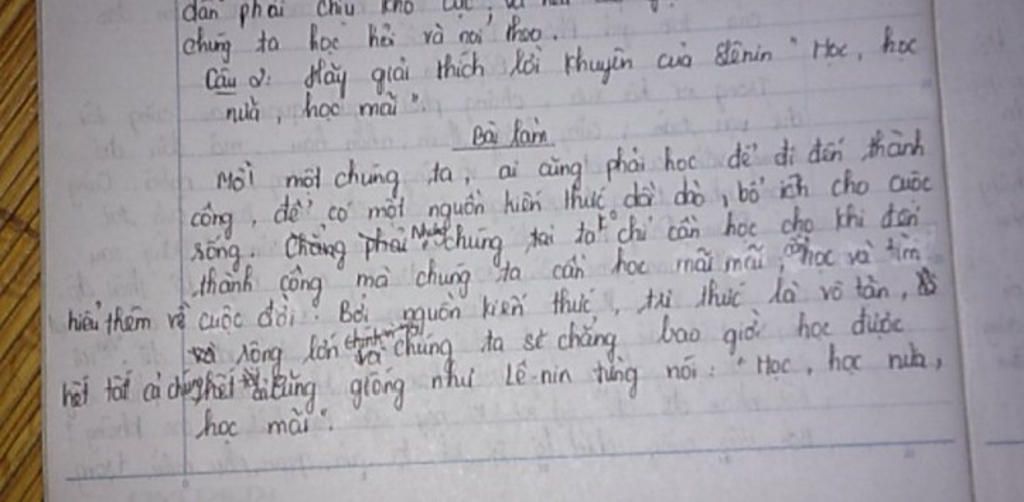 dân phải chịu khổ cực
chúng ta học hỏi và noi theo.
Câu 2: Hãy giải thích lời khuyên của Lênin "Học, học
nữa, học mãi".
Bài làm
Mỗi một chúng ta, ai cũng phải học để đi đến thành
công, để có một nguồn kiến thức dồi dào, bổ ích cho cuộc
sống. Nhưng chẳng phải chúng ta chỉ cần học cho khi đến
thành công mà chúng ta cần học mãi mãi, học và tìm
hiểu thêm về cuộc đời. Bởi nguồn kiến thức, tri thức là vô tận,
rộng lớn chính vì vậy chúng ta sẽ chẳng bao giờ học được
hết tất cả chúng cũng giống như Lê-nin từng nói: "Học, học nữa,
học mãi".